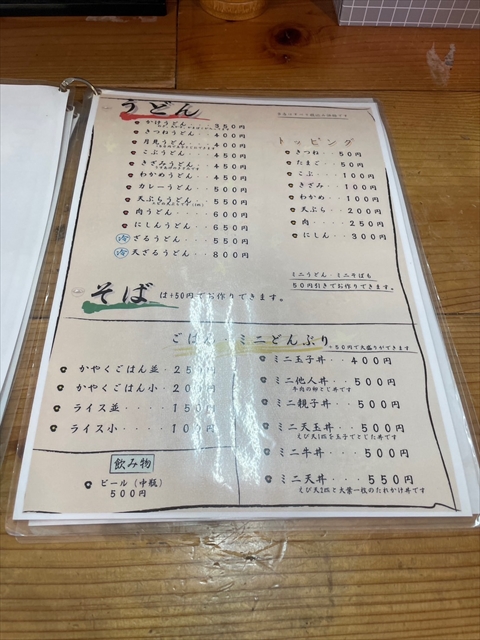 うどん
かけうどん・・・・350円
きつねうどん・・・400円
月見うどん・・・・400円
こぶうどん・・・・450円
きざみうどん・・・450円
わかめうどん・・・450円
カレーうどん・・・550円
天ぷらうどん・・・550円
肉うどん・・・・・600円
にしんうどん・・・650円
冷 ざるうどん・・・・550円
冷 天ざるうどん・・・800円
トッピング
きつね・・50円
たまご・・50円
こぶ・・・100円
きざみ・・100円
わかめ・・100円
天ぷら・・200円
肉・・・・250円
にしん・・300円
ミニうどん・ミニそばも
50円引きでお作りできます。
そば は+50円でお作りできます。
ごはん・ミニどんぶり
+50円で大盛りができます
かやくごはん並・250円
かやくごはん小・200円
ライス並・・・・150円
ライス小・・・・100円
飲み物
ビール(中瓶)
500円
ミニ玉子丼・・400円
ミニ他人丼・・500円
牛肉の卵とじ丼です
ミニ親子丼・・500円
ミニ天玉丼・・500円
えび天1匹を玉子でとじた丼です
ミニ牛丼・・・500円
ミニ天丼・・・550円
えび天2匹と大葉一枚のたれかけ丼です